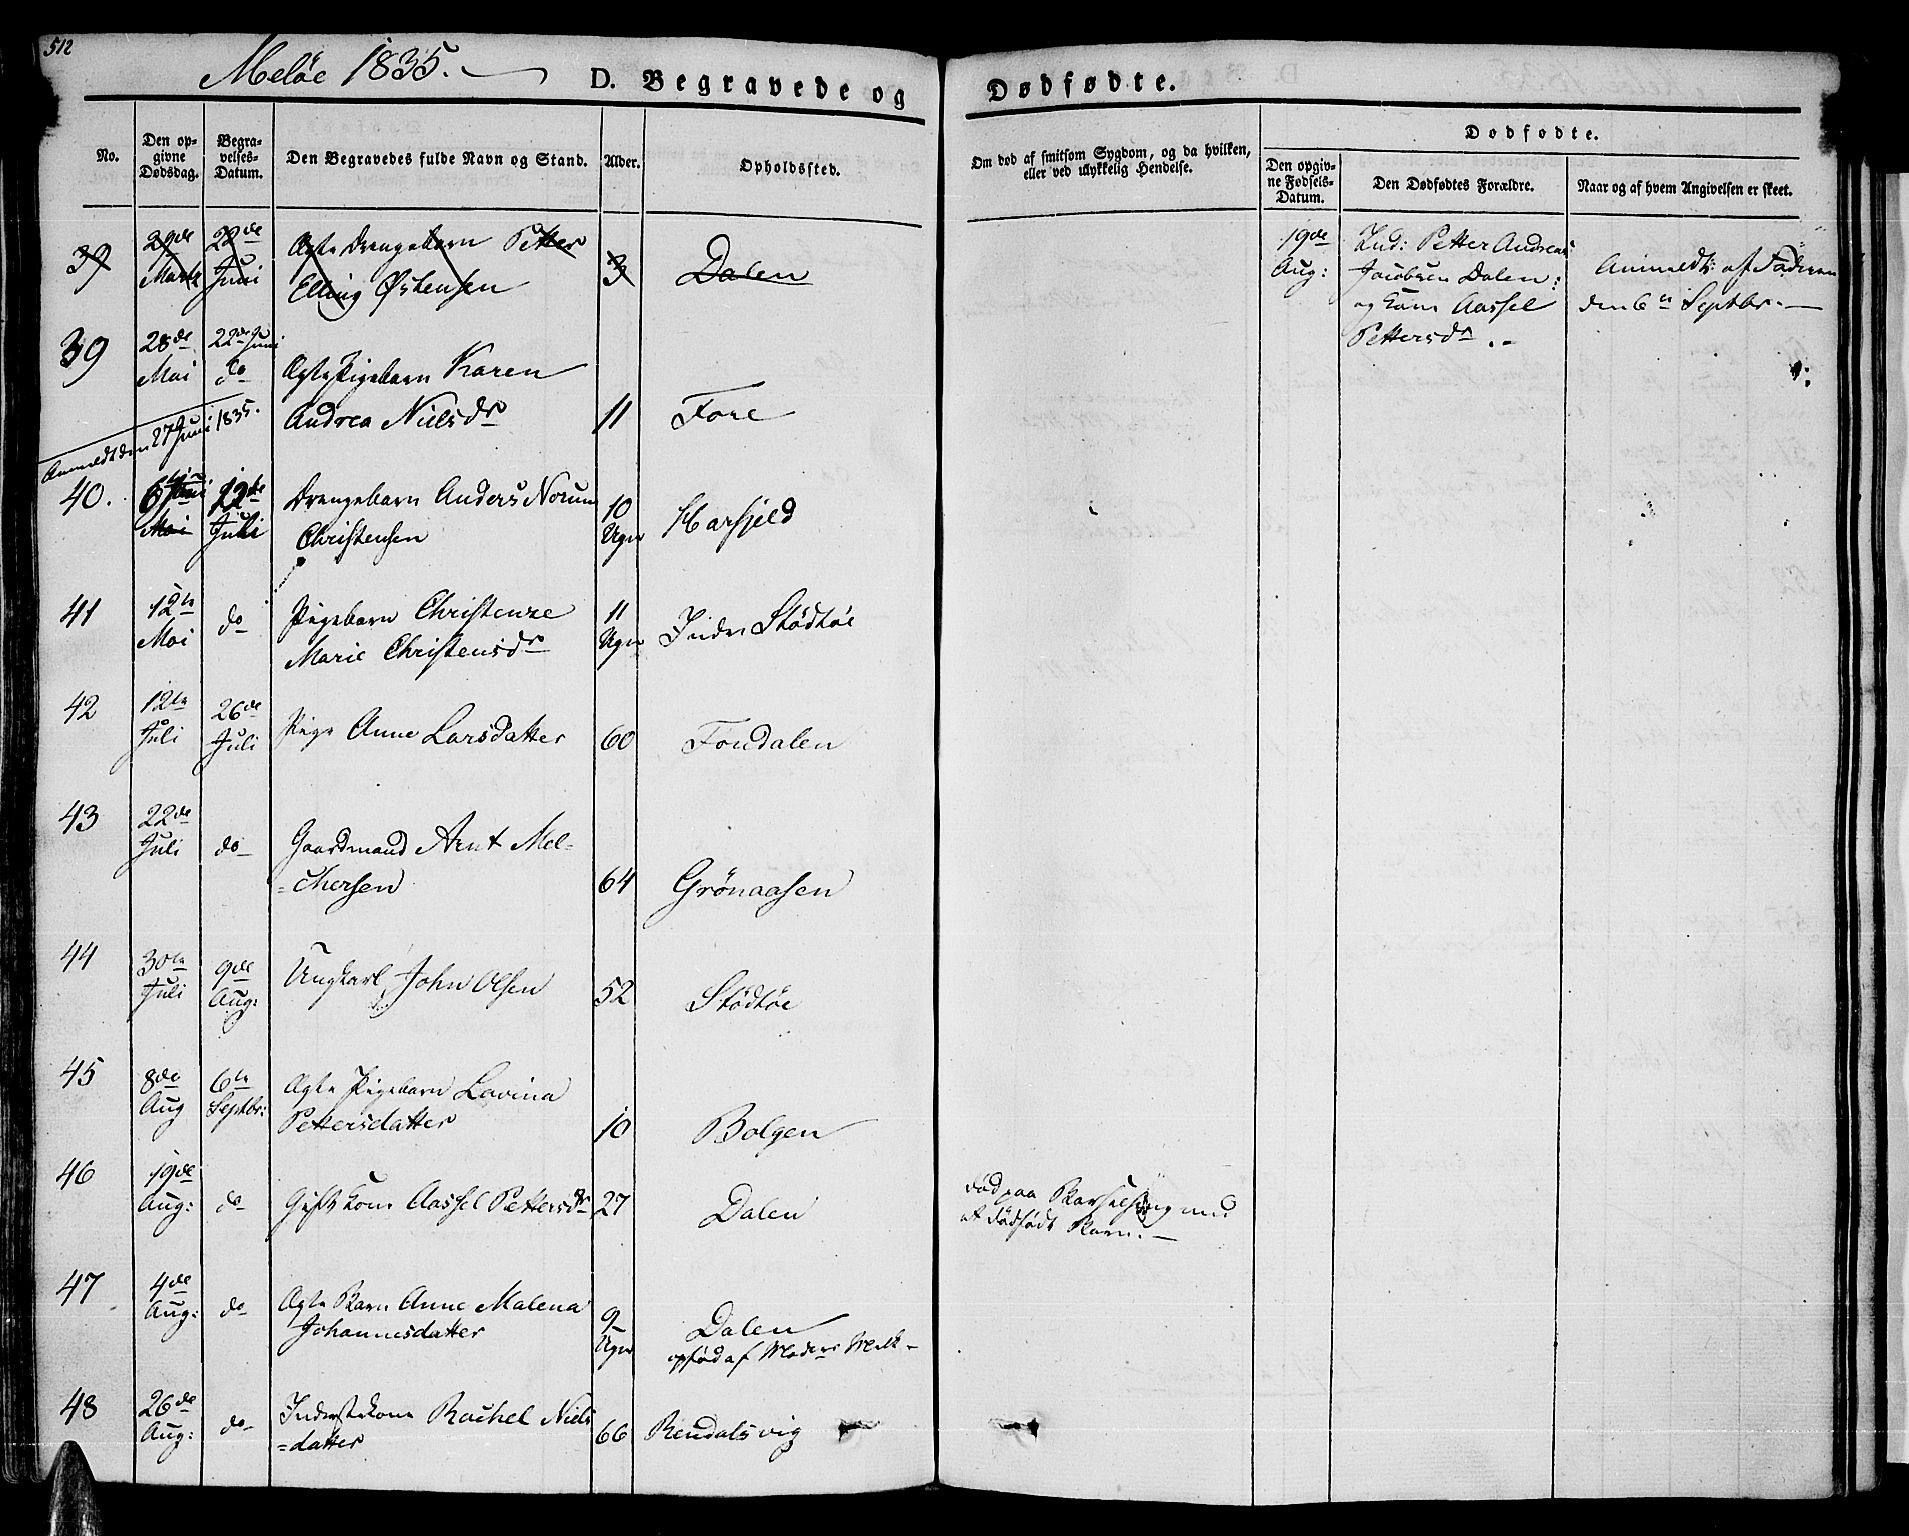 512
Meløe 1835.
D. Begravede og
Dødfødte.
No.
Den op-
givne
Dødsdag.
Begra-
velses-
Datum.
Den Begravedes fulde Navn og Stand.
Alder.
Opholdssted.
Om død af smitsom Sygdom, og da hvilken,
eller ved ulykkelig Hendelse.
Dødfødte.
Den opgiv-
ne Fødsels-
Datum.
Den Dødfødtes Forældre.
Naar og af hvem Angivelsen er skeet.
39
29de
Marts
22de
Juni
Ægte Drengebarn Petter
Elling Østensen
3
Dalen
19de
Aug:
Ind: Petter Andreas
Jacobsen Dalen:
og Kone Aassel
Pettersdr
Anmeldt af Faderen
den 6te Septbr.
39
28de
Mai
22de Juni
do
Ægte Pigebarn Karen
Andrea Nielsdr
11
Fore
Anmeldt den 27 Juni 1835.
40.
6te Juni
Mai
12de
Juli
Drengebarn Anders Norum
Christensen
10
Uger
Harfjeld
41
12te
Mai
do
Pigebarn Christenze
Marie Christensdr
11
Uger
Indre Stødtøe
42
12te
Juli
26de
Juli
Pige Anne Larsdatter
60
Fondalen
43
22de
Juli
do
Gaardmand Arnt Mel-
-chersen
64
Grønaasen
44
30te
Juli
9de
Aug:
Ungkarl John Olsen
52
Stødtøe
45
8de
Aug
6te
Septbr:
Ægte Pigebarn Lovina
Pettersdatter
10
Bolgen
46
19de
Aug:
do
Gift Kone Aassel Pettersdr
27
Dalen
død paa Barselseng med
et dødfødt Barn.
47
4de
Aug:
do
Ægte Barn Anne Malena
Johannesdatter
9
Uger
Dalen
opfød af Moders Melk
48
26de
Aug:
do
Inderstekone Rachel Niels
-datter
66
Rendalsvig